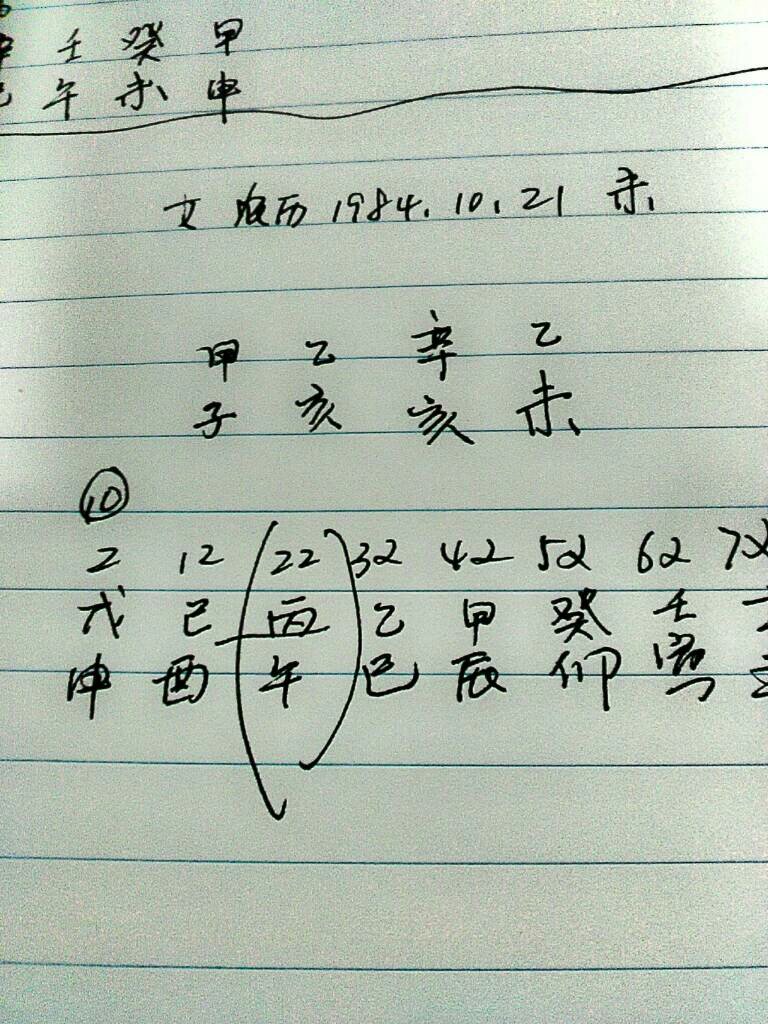 壬 癸 甲
午 未 申
农历 1984.10.21 未
甲 乙 辛 乙
子 亥 亥 未
10
2 12 22 32 42 52 62 72
戊 己 丙 乙 甲 癸 壬
申 酉 午 巳 辰 卯 寅